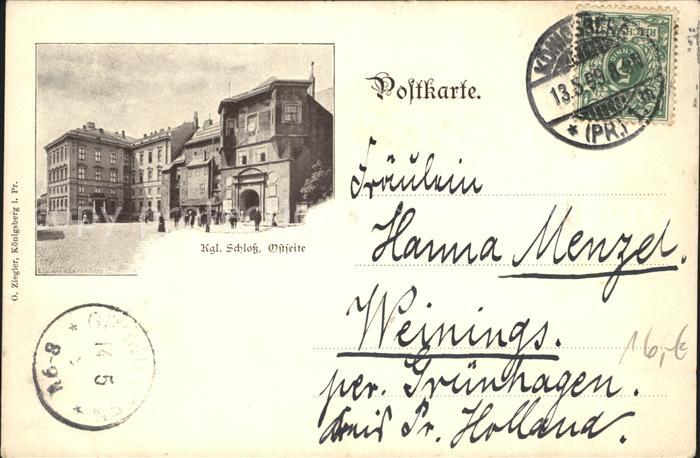 Postkarte.
Kgl. Schloß, Ostseite
O. Ziegler, Königsberg i. Pr.
Fräulein
Hanna Menzel.
Weinings.
per. Grünhagen.
Kreis Pr. Holland.
16,-€
KÖNIGSBERG
13.5.99
* (PR.)
GRÜNHAGEN
14 5
* *